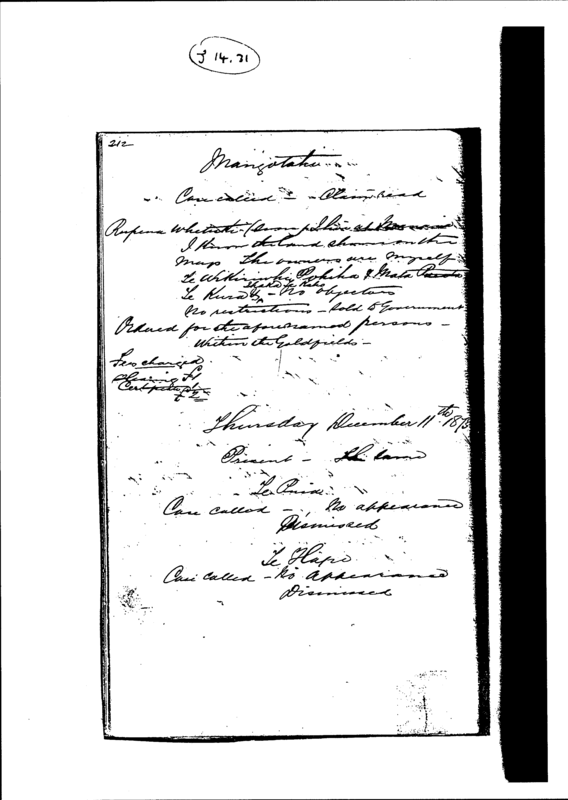 J 14.31
212
Mangotahi
Case called – Claim read
Rapena Whetiki (sworn
I know the land shown on the
map The owners are myself
Te Wikiriwhi Pokiha & Mata
Ihaka te Kaha
Te Kura – No objectors
No restrictions – Sold to Government
Ordered for the aforenamed persons –
Within the Goldfields –
Fees charged
Hearing £1
Certificate £1
£2
Thursday December 11th 1873
Present – The same
Te Puia
Case called – No appearance
Dismissed
Te Hape
Case called – No appearance
Dismissed